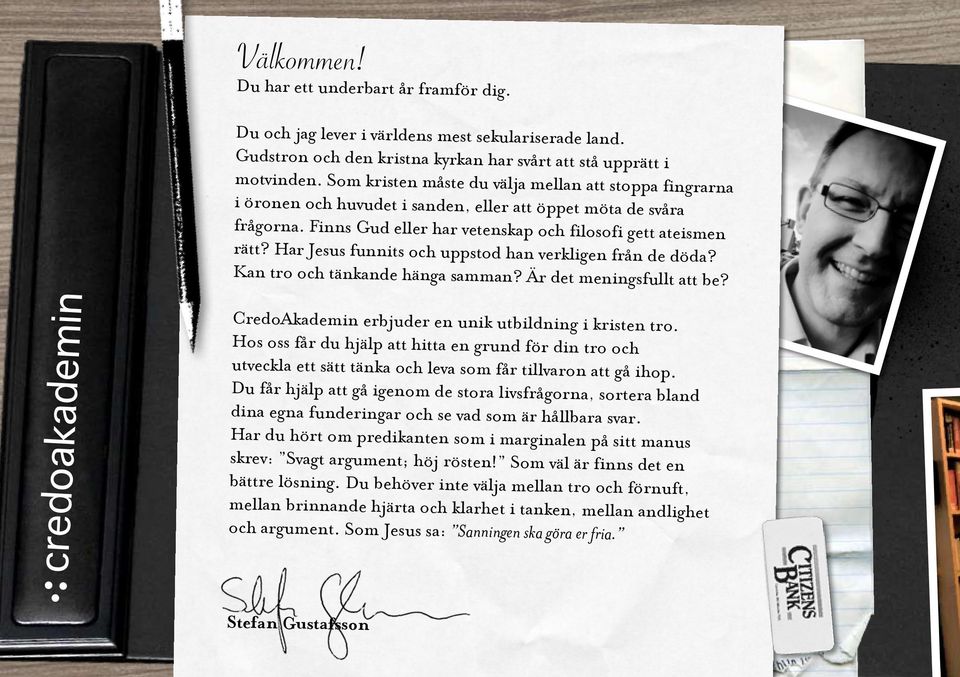 Välkommen!
Du har ett underbart år framför dig.
Du och jag lever i världens mest sekulariserade land.
Gudstron och den kristna kyrkan har svårt att stå upprätt i
motvinden. Som kristen måste du välja mellan att stoppa fingrarna
i öronen och huvudet i sanden, eller att öppet möta de svåra
frågorna. Finns Gud eller har vetenskap och filosofi gett ateismen
rätt? Har Jesus funnits och uppstod han verkligen från de döda?
Kan tro och tänkande hänga samman? Är det meningsfullt att be?
CredoAkademin erbjuder en unik utbildning i kristen tro.
Hos oss får du hjälp att hitta en grund för din tro och
utveckla ett sätt tänka och leva som får tillvaron att gå ihop.
Du får hjälp att gå igenom de stora livsfrågorna, sortera bland
dina egna funderingar och se vad som är hållbara svar.
Har du hört om predikanten som i marginalen på sitt manus
skrev: ”Svagt argument; höj rösten!” Som väl är finns det en
bättre lösning. Du behöver inte välja mellan tro och förnuft,
mellan brinnande hjärta och klarhet i tanken, mellan andlighet
och argument. Som Jesus sa: ”Sanningen ska göra er fria.”
Stefan Gustafsson
credoakademin
CITIZENS
BANK